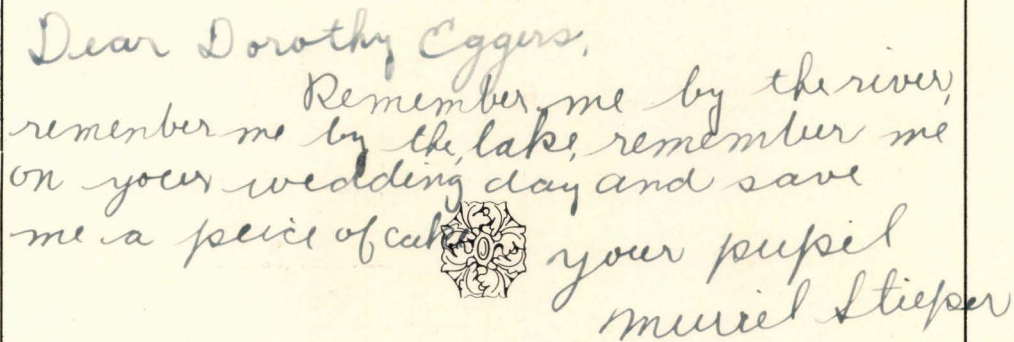 Dear Dorothy Eggers,
Remember me by the river,
remenber me by the lake, remember me
on your wedding day and save
me a peice of cake
your pupil
Muriel Stieper